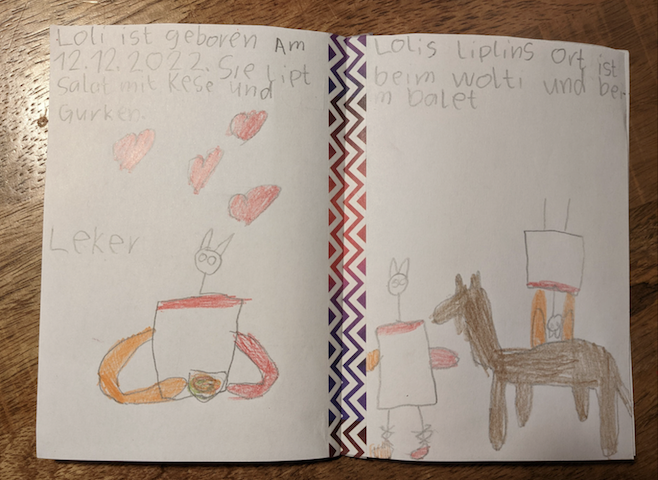 Loli ist geboren Am
12.12.2022. Sie lipt
Salat mit Kese und
Gurken.
Leker
Lolis liplins Ort ist
beim wolti und bei
m balet